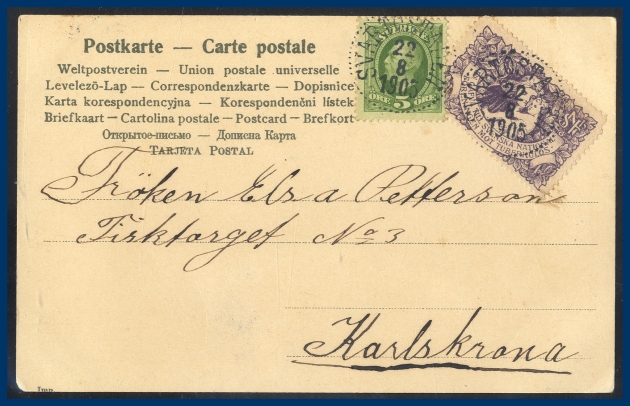 Postkarte — Carte postale
Weltpostverein — Union postale universelle
Levelező-Lap — Correspondenzkarte — Dopisnice
Karta korespondencyjna — Korespondenční lístek
Briefkaart — Cartolina postale — Postcard — Brefkort
Открытое-письмо — Дописна Карта
TARJETA POSTAL
SVERIGE
5 ÖRE 5
22
8
1905
22
8
1905
SVENSKA NATIONAL
MOT TUBERKULOS
Fröken Elsa Petterson
Fisktorget No 3
Karlskrona
Imp.